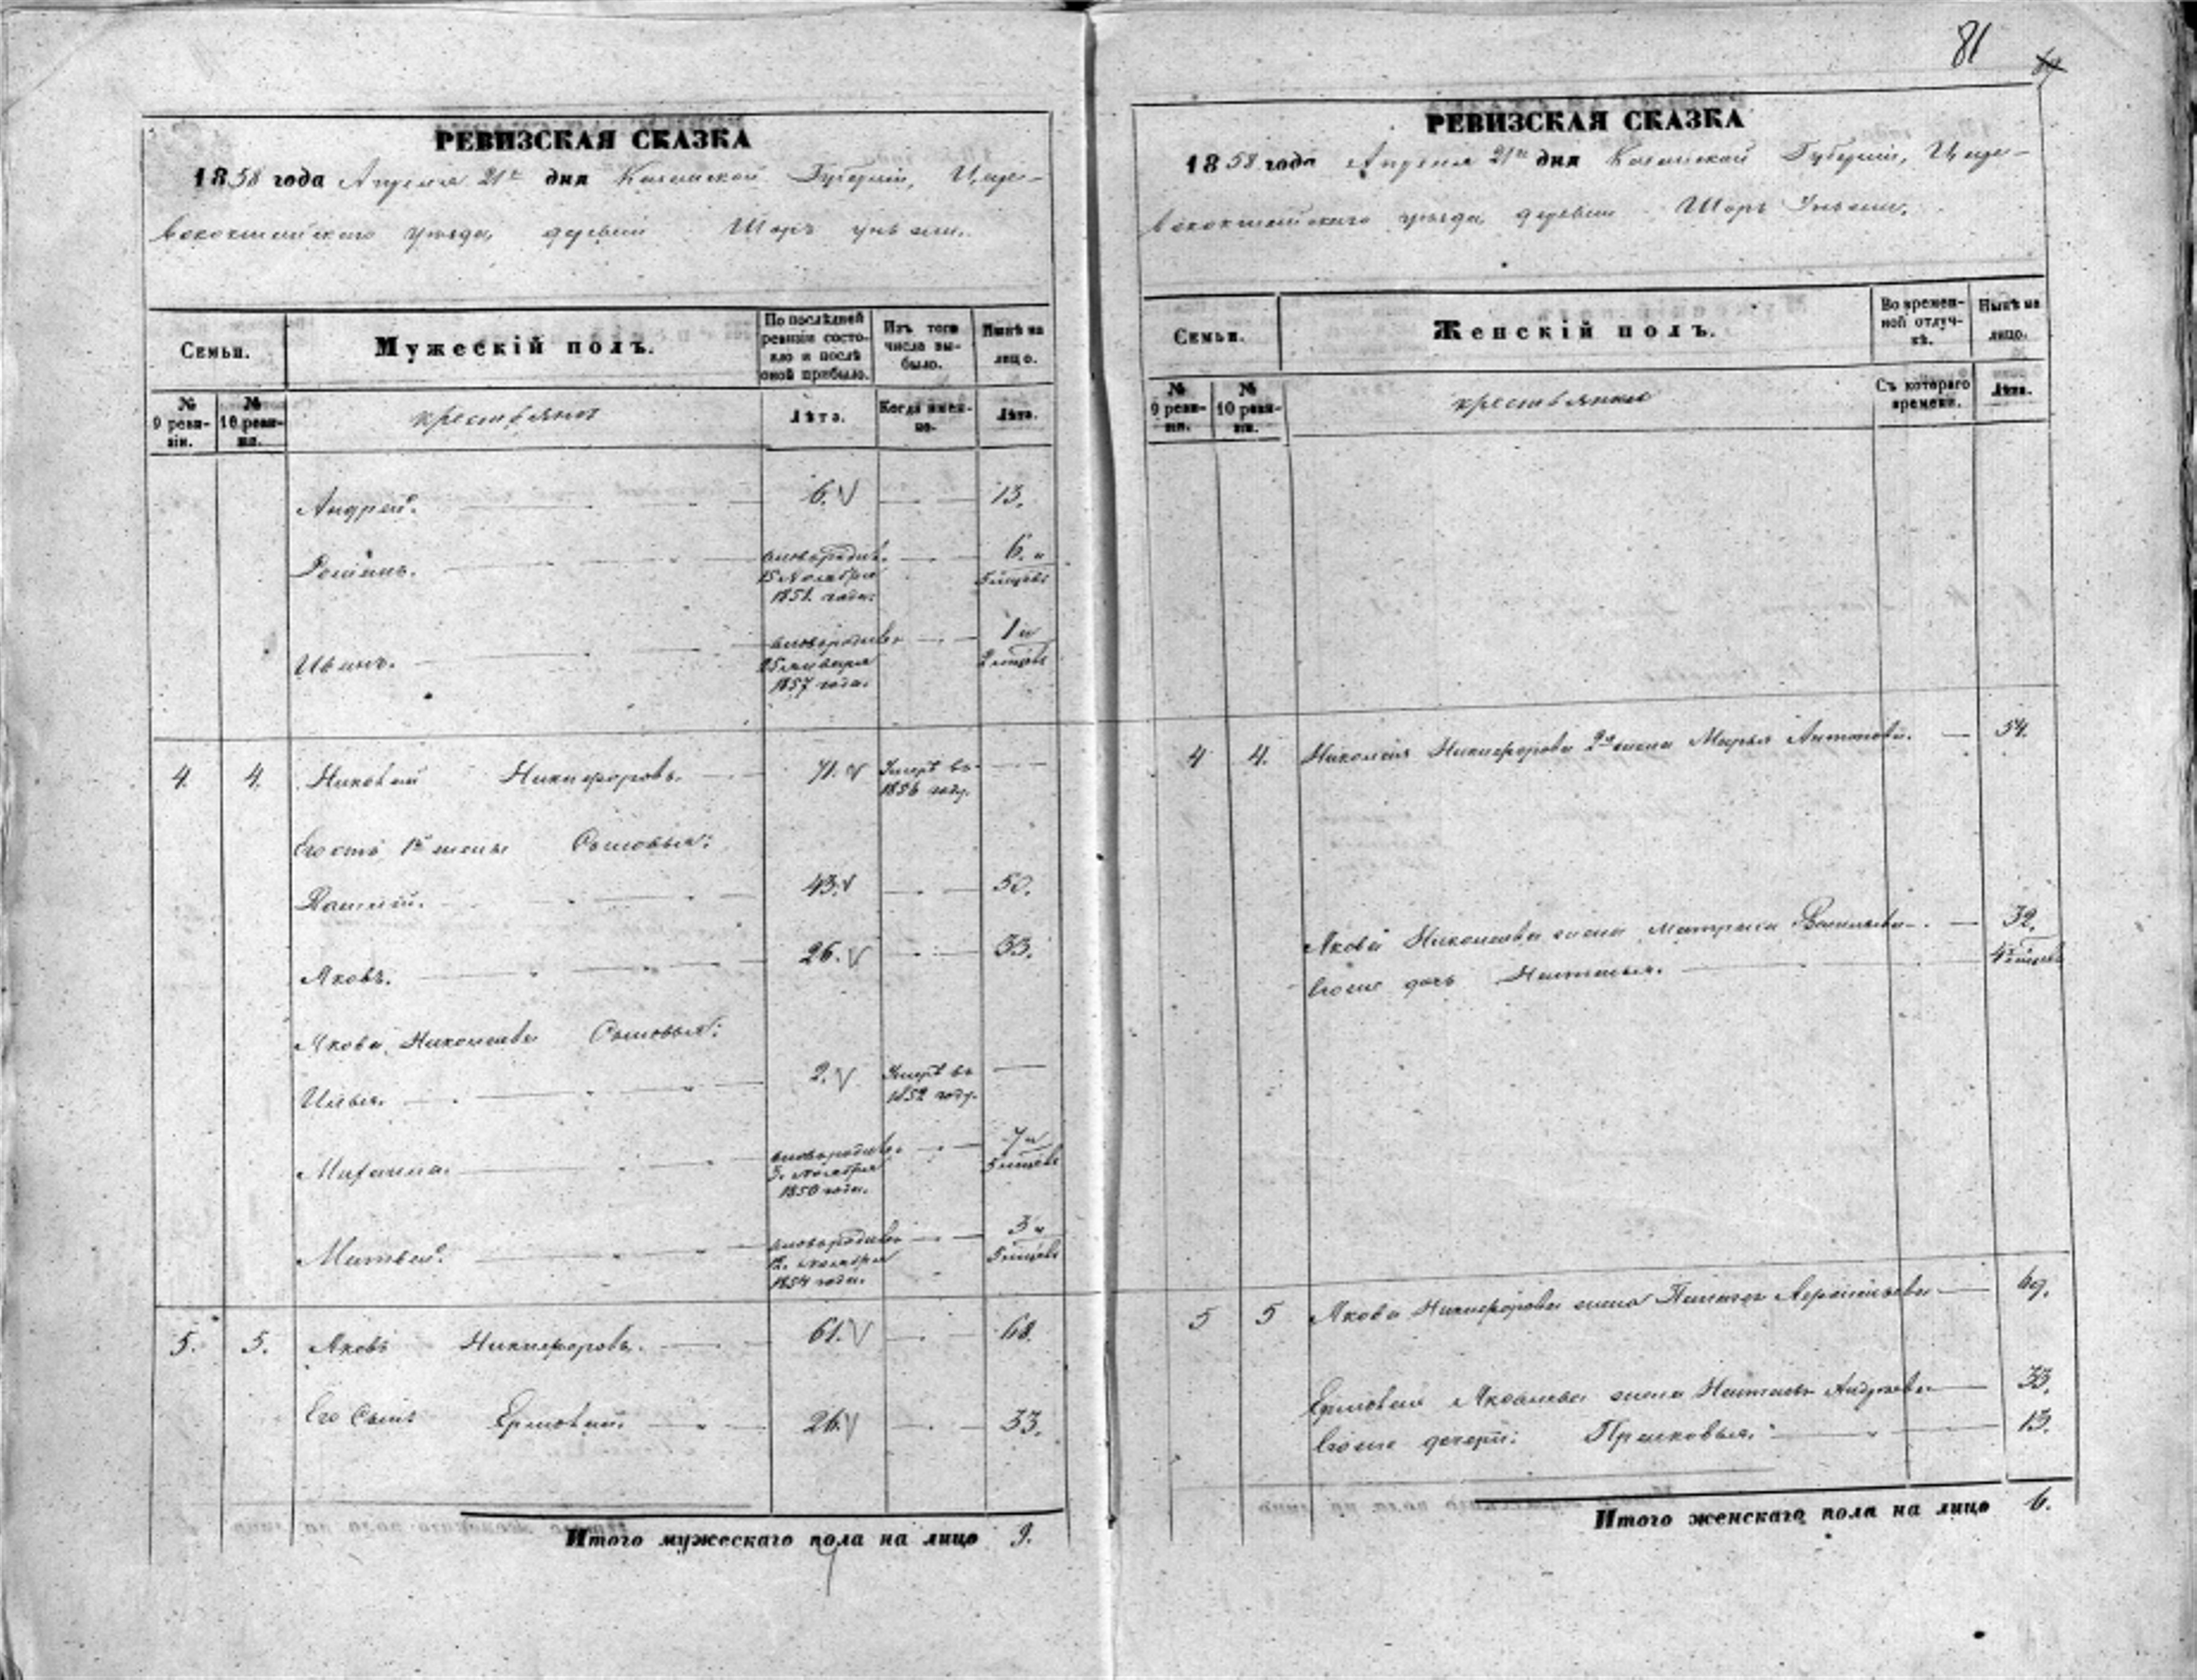 81
РЕВИЗСКАЯ СКАЗКА
1858 года Апреля 21го дня Казанской Губерніи, Царе-
вококшайскаго уѣзда, деревни Шоръ унъжи.
Семьи.
Мужескій полъ.
По послѣдней ревизіи состо-яло и послѣ оной прибыло.
Изъ того числа вы-было.
Нынѣ на лицо.
№ 9 реви-зіи.
№ 10 реви-зіи.
крестьяне
Лѣта.
Когда имен-но.
Лѣта.
Андрей. 6. 13.
Романъ. новорожден. 15 Ноября 1851 года. 6. и 5 мѣсяц.
Иванъ. 25 января 1857 года. 1 и 2 мѣсяц.
4. 4. Николай Никифоровъ. 71. Умеръ въ 1856 году.
Его отъ 1й жены Сыновья:
43. 50.
Яковъ. 26. 33.
Якова Николаева Сыновья:
Илья. 2. Умеръ въ 1852 году.
Михаила. 3. ноября 1850 года. 7 и 5 мѣсяц.
Матвей. 12. ноября 1854 года. 3 и 5 мѣсяц.
5. 5. Яковъ Никифоровъ. 61. 68.
Его Сынъ Ермолай. 26. 33.
Итого мужескаго пола на лицо 9.
РЕВИЗСКАЯ СКАЗКА
1858 года Апреля 21го дня Казанской Губерніи, Царе-
вококшайскаго уѣзда, деревни Шоръ Унъжи.
Семьи.
Женскій полъ.
Во времен-ной отлуч-кѣ.
Нынѣ на лицо.
№ 9 реви-зіи.
№ 10 реви-зіи.
крестьянки
Съ котораго времени.
Лѣта.
4 4. Николая Никифорова 2я жена Марья Антонова. 54.
Якова Николаева жена Матрена Васильева. 32.
Его же дочь Наталья. 4 мѣсяц.
5 5 Якова Никифорова жена 69.
Ермолая Яковлева жена Наталья Андреева 33.
Его же дочери: Прасковья. 13.
Итого женскаго пола на лицо 6.